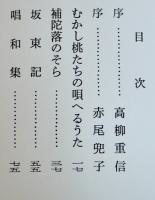 目次
序………………高柳重信
序………………赤尾兜子
むかし桃たちの唄へるうた………一七
補陀落のそら………………三七
坂東記………………五五
唱和集………………七五